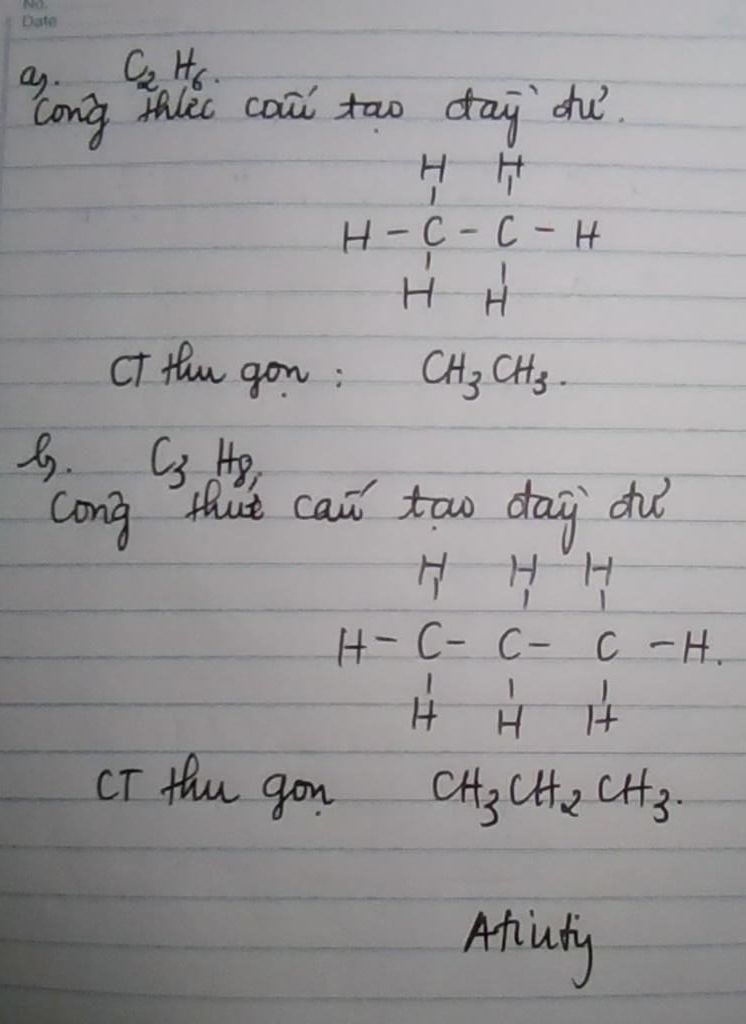 No.
Date
a. C2 H6.
Công thức cấu tạo đầy đủ.
H H
H - C - C - H
H H
CT thu gọn : CH3 CH3.
b. C3 H8,
Công thức cấu tạo đầy đủ
H H H
H - C - C - C - H.
H H H
CT thu gọn CH3 CH2 CH3.